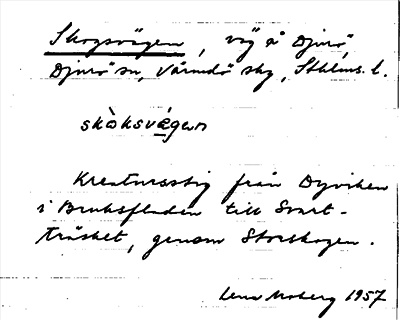 Skogsvägen, väg å Djurö,
Djurö sn, Värmdö skg, Sthlms l.
skòksvä́gan
Kreatursstig från Dyviken
i Bruksfladen till Svart-
träsket, genom Storskogen.
Lena Moberg 1957